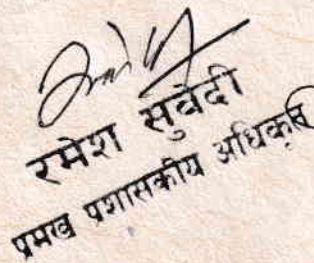 रमेश सुवेदी
प्रमख प्रशासकीय अधिकृत